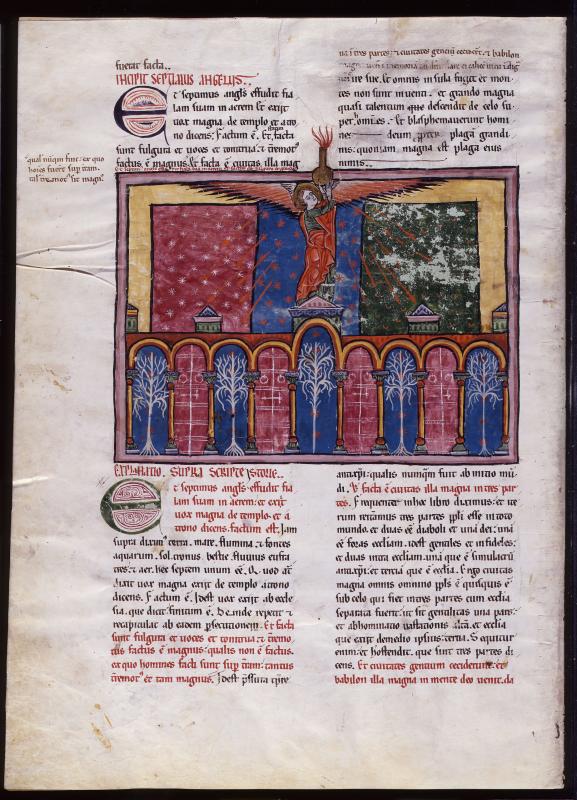 fuerat facta..
INCIPIT SEPTIMUS ANGELUS..
Et septimus angl̄s effudit fia
lam suam in aerem et exiit
uox magna de templo et a tro
no dicens; Factum ē. Et facta
sunt fulgura et uoces et tonitrua; et t̄remot'
factus ē magnus; et facta ē ciuitas illa mag
tres partes; et ciuitates
et babilon
ire sue. Et omnis insula fugit et mon
tes non sunt inuenti. et grando magna
quasi talentum descendit de celo su
per omīes. Et blasphemauerunt homi
nes deum, ppter plagā grandi
nis; quoniam magna est plaga eius
nimis..
EXPLANATIO. SUPRA SCRIPTE ISTORIE..
Et septimus angl̄s effudit fia
lam suam in aerem; et exiit
uox magna de templo; et a
trono dicens. factum est. Jam
supra diximꝰ terra. mare. flumina. et fontes
aquarum. sol. tronus. bestie. fluuius eufra
tres; et aer. hec septem unum ē. Quod aūt
dixit uox magna exiit de templo a trono
dicens. Factum ē. Idest uox exiit ab eccle
sia. que dicit finitum ē. Deinde repetit et
recapitulat ab eadem psecutionem. Et facta
sunt fulgura et uoces et tonitrua; et t̄remo
tus factus ē magnus; qualis non ē factus.
ex quo homines facti sunt sup t̄ram; tantus
t̄remot' et tam magnus. Idest p̄ssura
antixp̄i; qualis numqm̄ fuit ab initio mū
di. Et facta ē ciuitas illa magna in tres par
tes. Frequenter in hoc libro diximus; et ite
rum tres partes ppl̄i esse in toto
mundo. et duas eē diaboli et una dei; una
ē foras eccl̄iam. idest gentiles et infideles;
et duas intra eccl̄iam. una que ē simulacrū
antixp̄i; et tertia que ē eccl̄ia. Ergo ciuitas
magna omnis omnino ppl̄s ē quisquis ē
sub celo qui fiet in tres partes cum eccl̄ia
separata fuerit; ut sit gentilitas una pars;
et abhominatio uastationis alt̄a. et eccl̄ia
que exiit de medio ipsius; tertia. Sequitur
enim; et hostendit. que sunt tres partes di
cens. Et ciuitates gentium ceciderunt; et
babilon illa magna in mente deo uenit. da